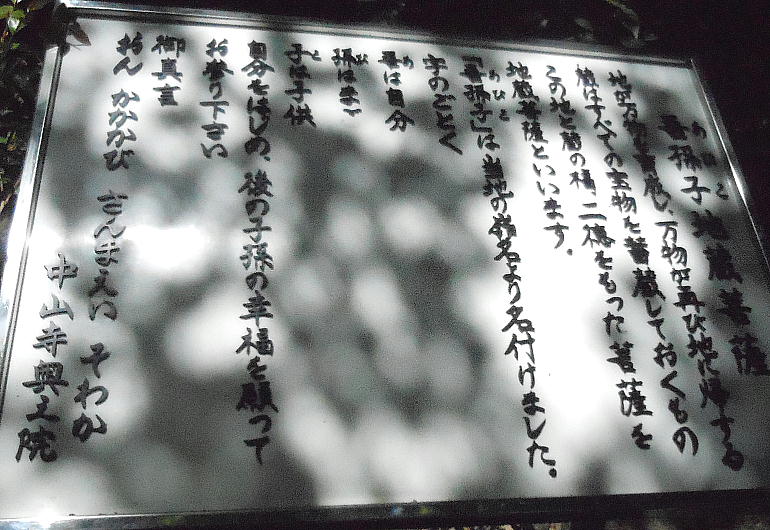 吾孫子地蔵菩薩
地が万物を育成し、万物が再び地に帰する
蔵はすべての宝物を蓄蔵しておくもの
この地と蔵の福、二徳をもった菩薩を
地蔵菩薩といいます。
「吾孫子」は当地の嶺名より名付けました。
字のごとく
吾は自分
孫はまご
子は子供
自分をはじめ、後の子孫の幸福を願って
お参り下さい
御真言
おん かかかび さんまえい そわか
中山寺奥之院